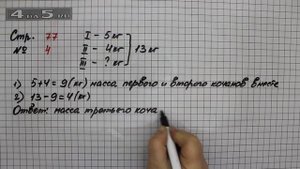 4on5.ru
Стр. 77 I - 5 кг
№ II - 4 кг 13 кг
4 III - ? кг
1) 5+4=9(кг) масса первого и второго кочанов вместе
2) 13-9=4(кг)
Ответ: масса третьего коча